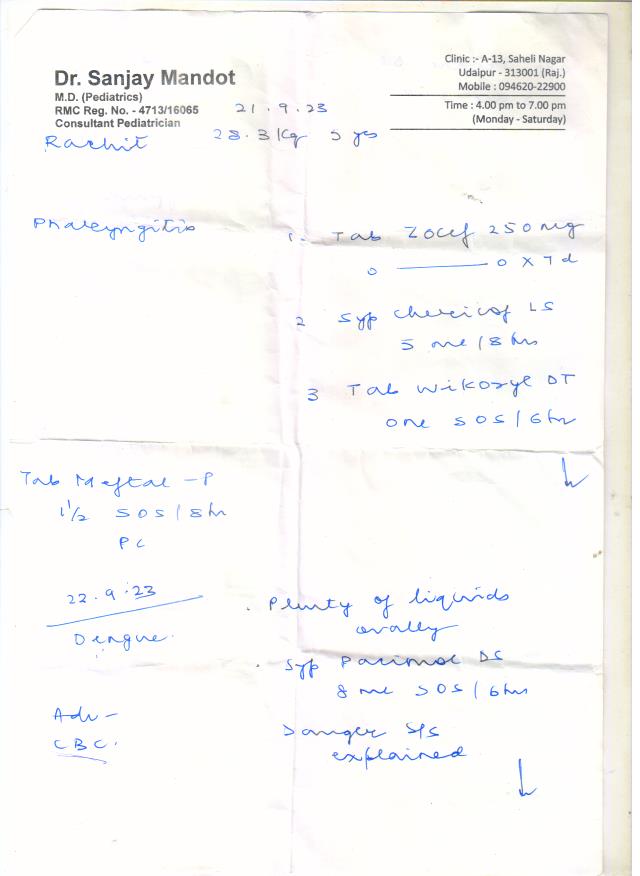 Dr. Sanjay Mandot
M.D. (Pediatrics)
RMC Reg. No. - 4713/16065
Consultant Pediatrician
Clinic :- A-13, Saheli Nagar
Udaipur - 313001 (Raj.)
Mobile : 094620-22900
Time : 4.00 pm to 7.00 pm
(Monday - Saturday)
21.9.23
Rachit 28.3 Kg yrs
Pharyngitis
1. Tab Zocef 250 mg
0 —— 0 x 7d
2 Syp LS
5 ml / 8 hrs
3 Tab Wikoryl DT
one SOS / 6 hr
Tab Meftal - P
1 1/2 SOS / 8 hr
PC
22.9.23
Dengue.
. Plenty of liquids
orally
. Syp Pacimol DS
8 ml SOS / 6 hrs
Adv -
CBC.
Danger S/S
explained